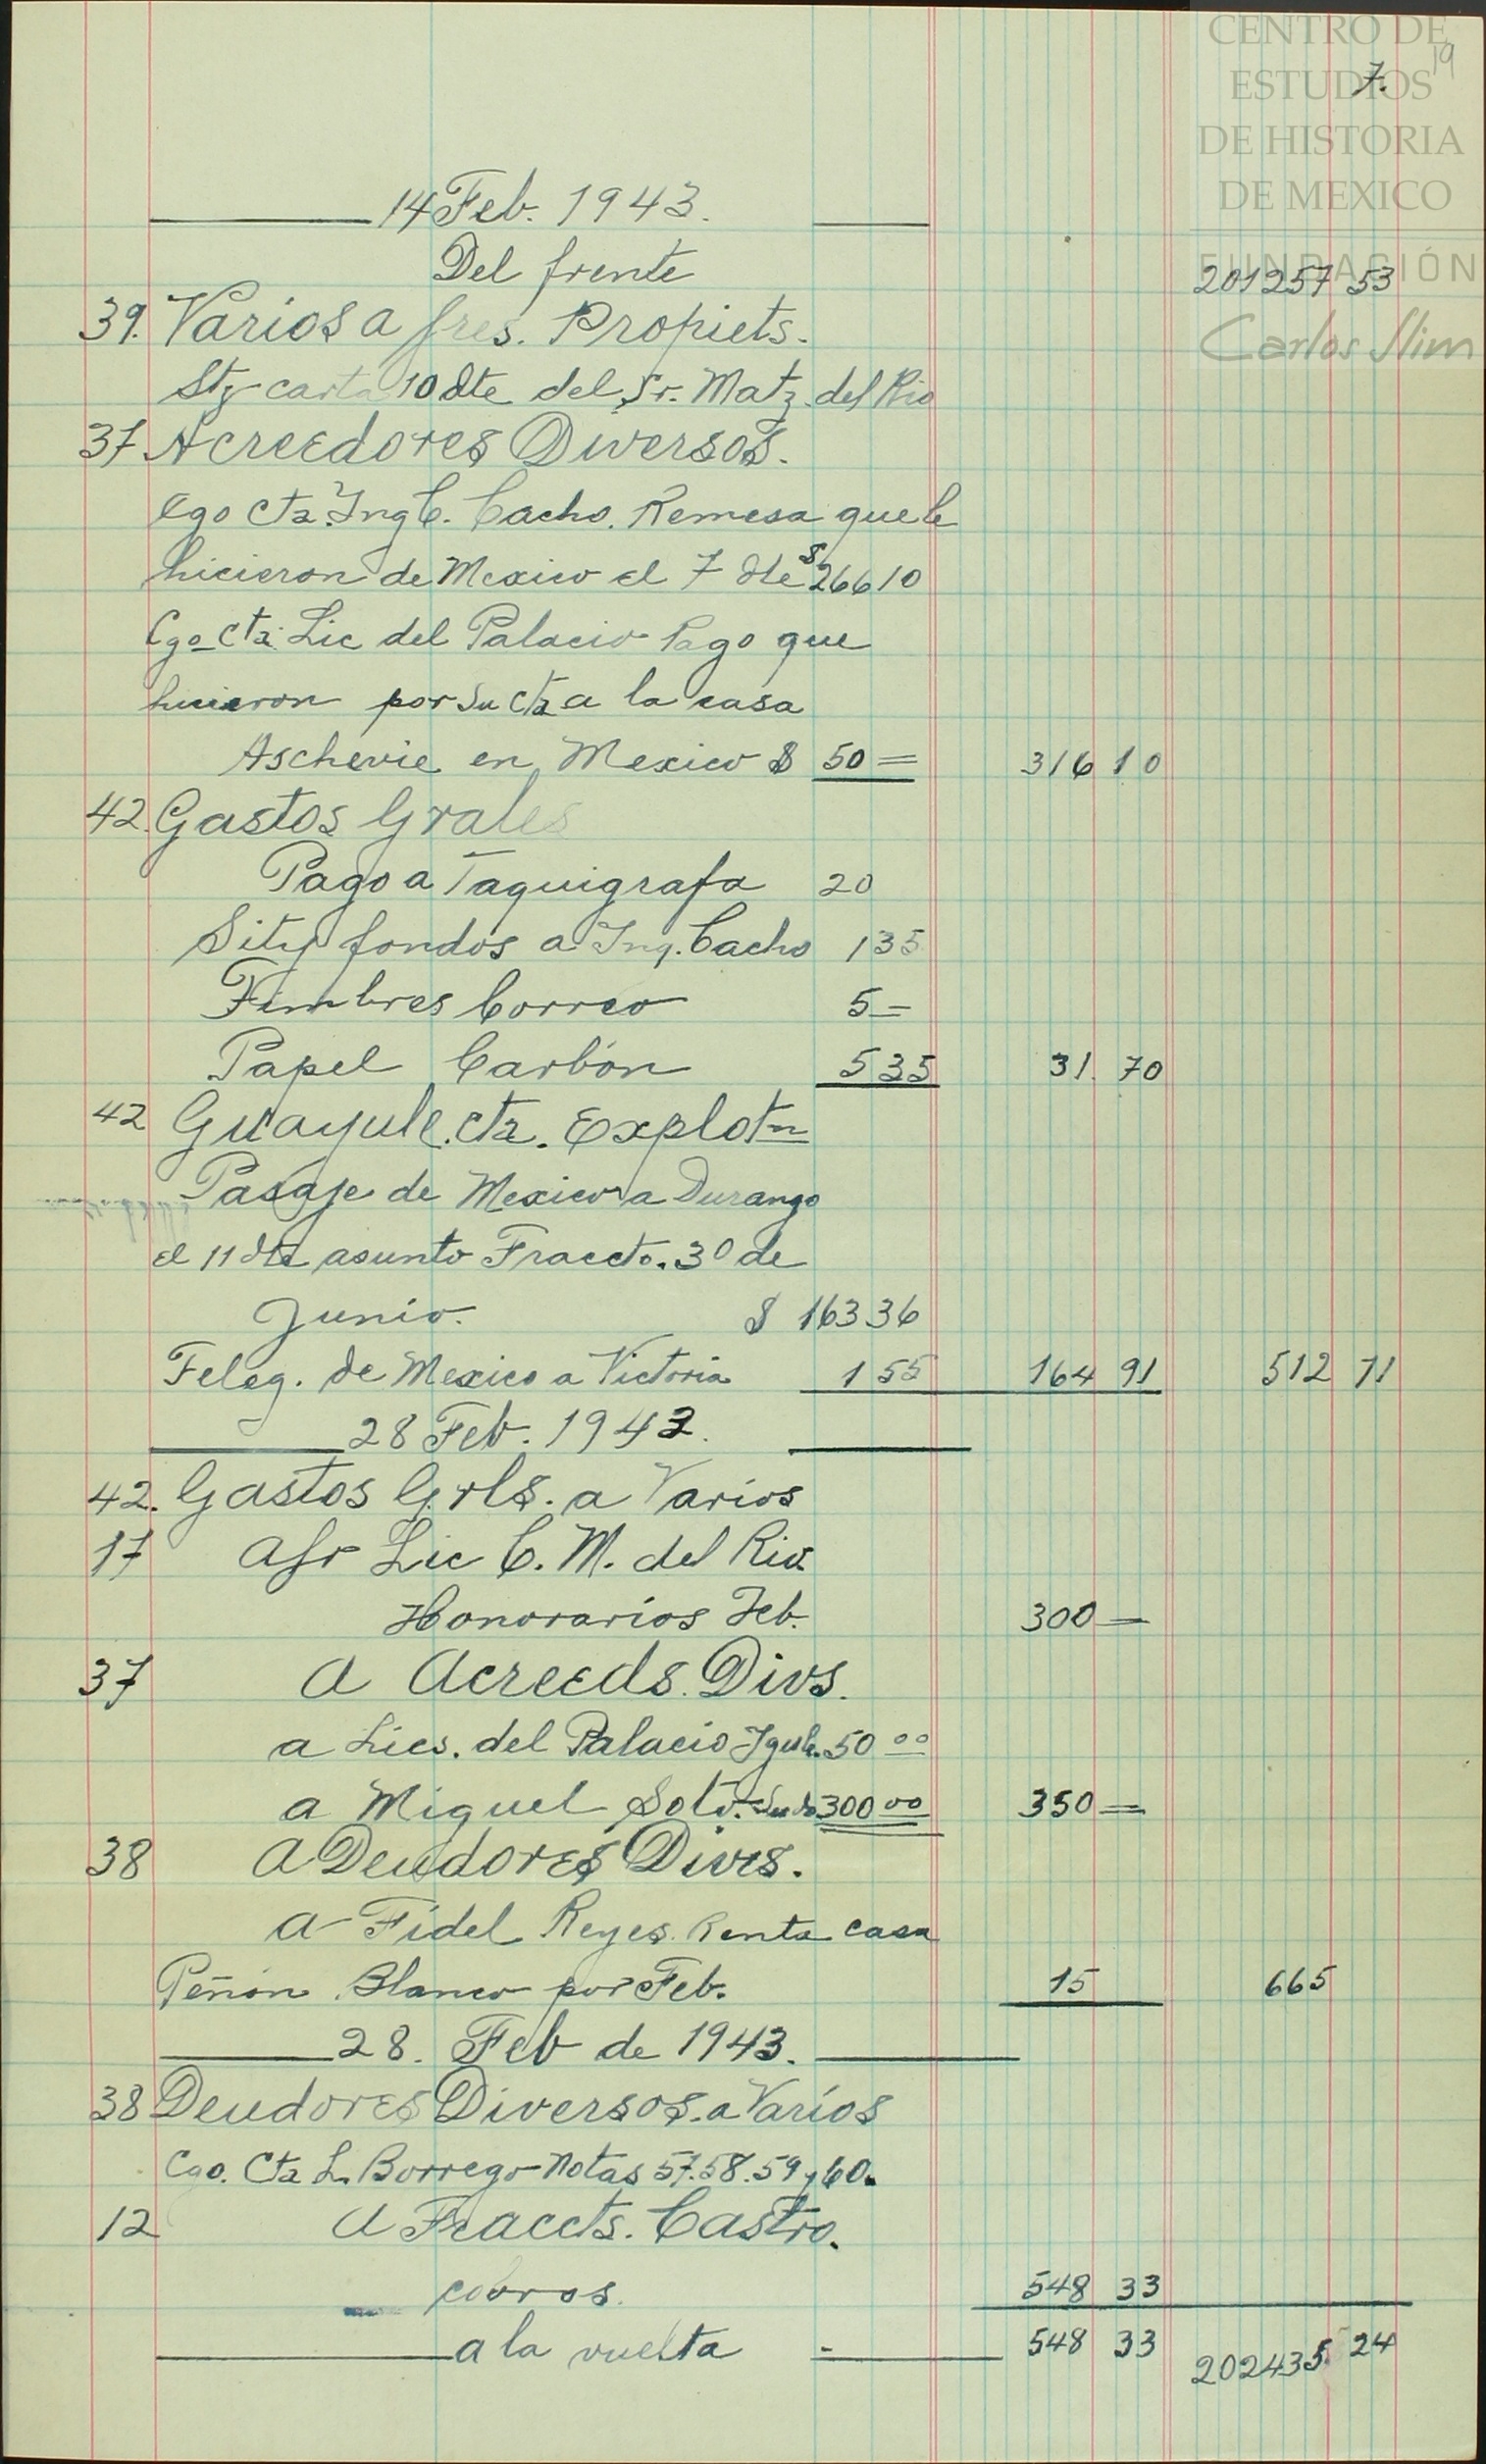 CENTRO DE
ESTUDIOS
DE HISTORIA
DE MEXICO
FUNDACIÓN
Carlos Slim
19
7.
14 Feb. 1943.
Del frente 201257 53
39. Varios a fres. Propiets.
Stg carta 10 dte del Sr. Matz. del Rio
37 Acreedores Diversos.
Cgo Cta. Ing C. Cacho. Remesa que le
hicieron de Mexico el 7 dte $ 266 10
Cgo Cta. Lic del Palacio Pago que
hicieron por su Cta a la casa
Ascherie en Mexico $ 50 = 316 10
42. Gastos Grales
Pago a Taquigrafa 20
Sitg fondos a Ing. Cacho 1 35
Timbres Correo 5 -
Papel Carbón 5 35 31. 70
42 Guayule. cta. Explotn
Pasaje de Mexico a Durango
el 11 dte asunto Fraccto. 30 de
Junio. $ 163 36
Teleg. de Mexico a Victoria 1 55 164 91 512 71
28 Feb. 1943.
42. Gastos Grls. a Varios
17 a fr Lic C. M. del Rio.
Honorarios Feb. 300 -
37 a Acreeds. Divs.
a Lics. del Palacio Iguala. 50 00
a Miguel Soto. Sueldo 300 00 350 =
38 a Deudores Divrs.
a Fidel Reyes. Renta casa
Peñon Blanco por Feb. 15 665
28. Feb de 1943.
38 Deudores Diversos. a Varios
Cgo. Cta L. Borrego Notas 57.58.59 y 60.
12 a Fraccts. Castro.
cobros. 548 33
a la vuelta - 548 33 202435 24